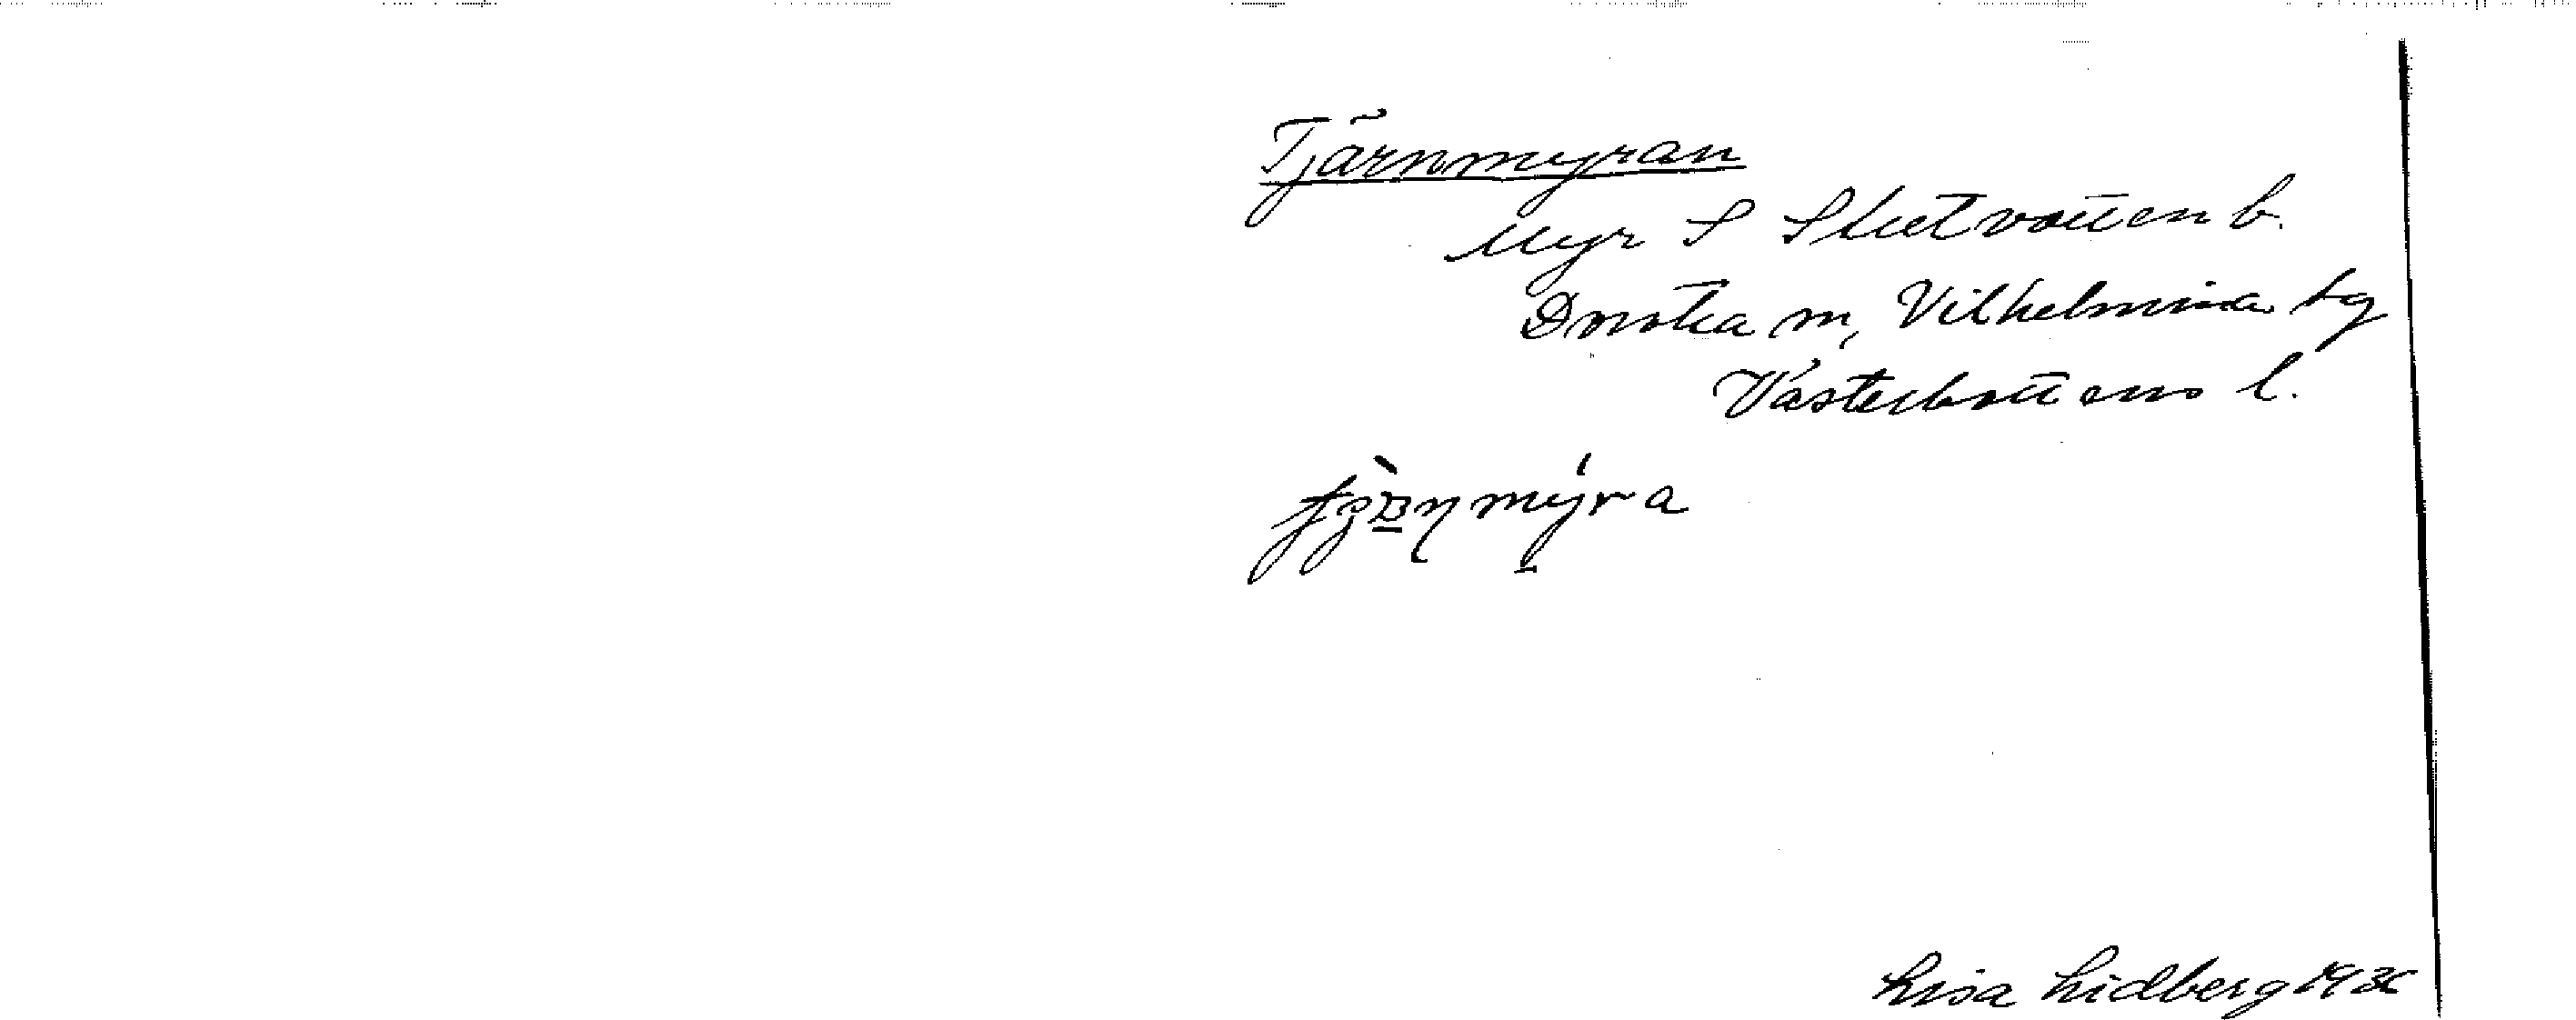 Tjärnmyran
Myr S Slutvatten b.
Dorotea m, Vilhelmina tg
Västerbottens l.
Lisa Lidberg 1936